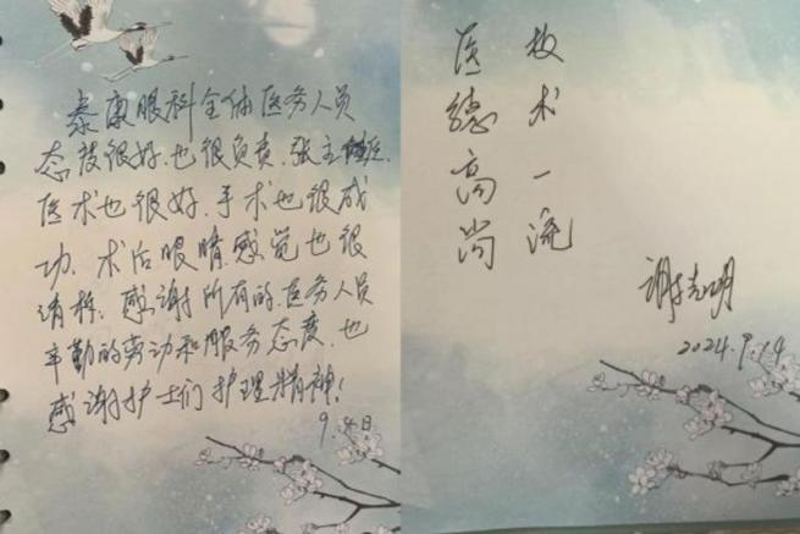 泰康眼科全体医务人员
态度很好.也很负责.张主任.
医术也很好.手术也很成
功.术后眼睛感觉也很
清晰.感谢所有的医务人员
辛勤的劳动和服务态度.也
感谢护士们护理精神!
9.4日
医德高尚
技术一流
谢志明
2024.9.14